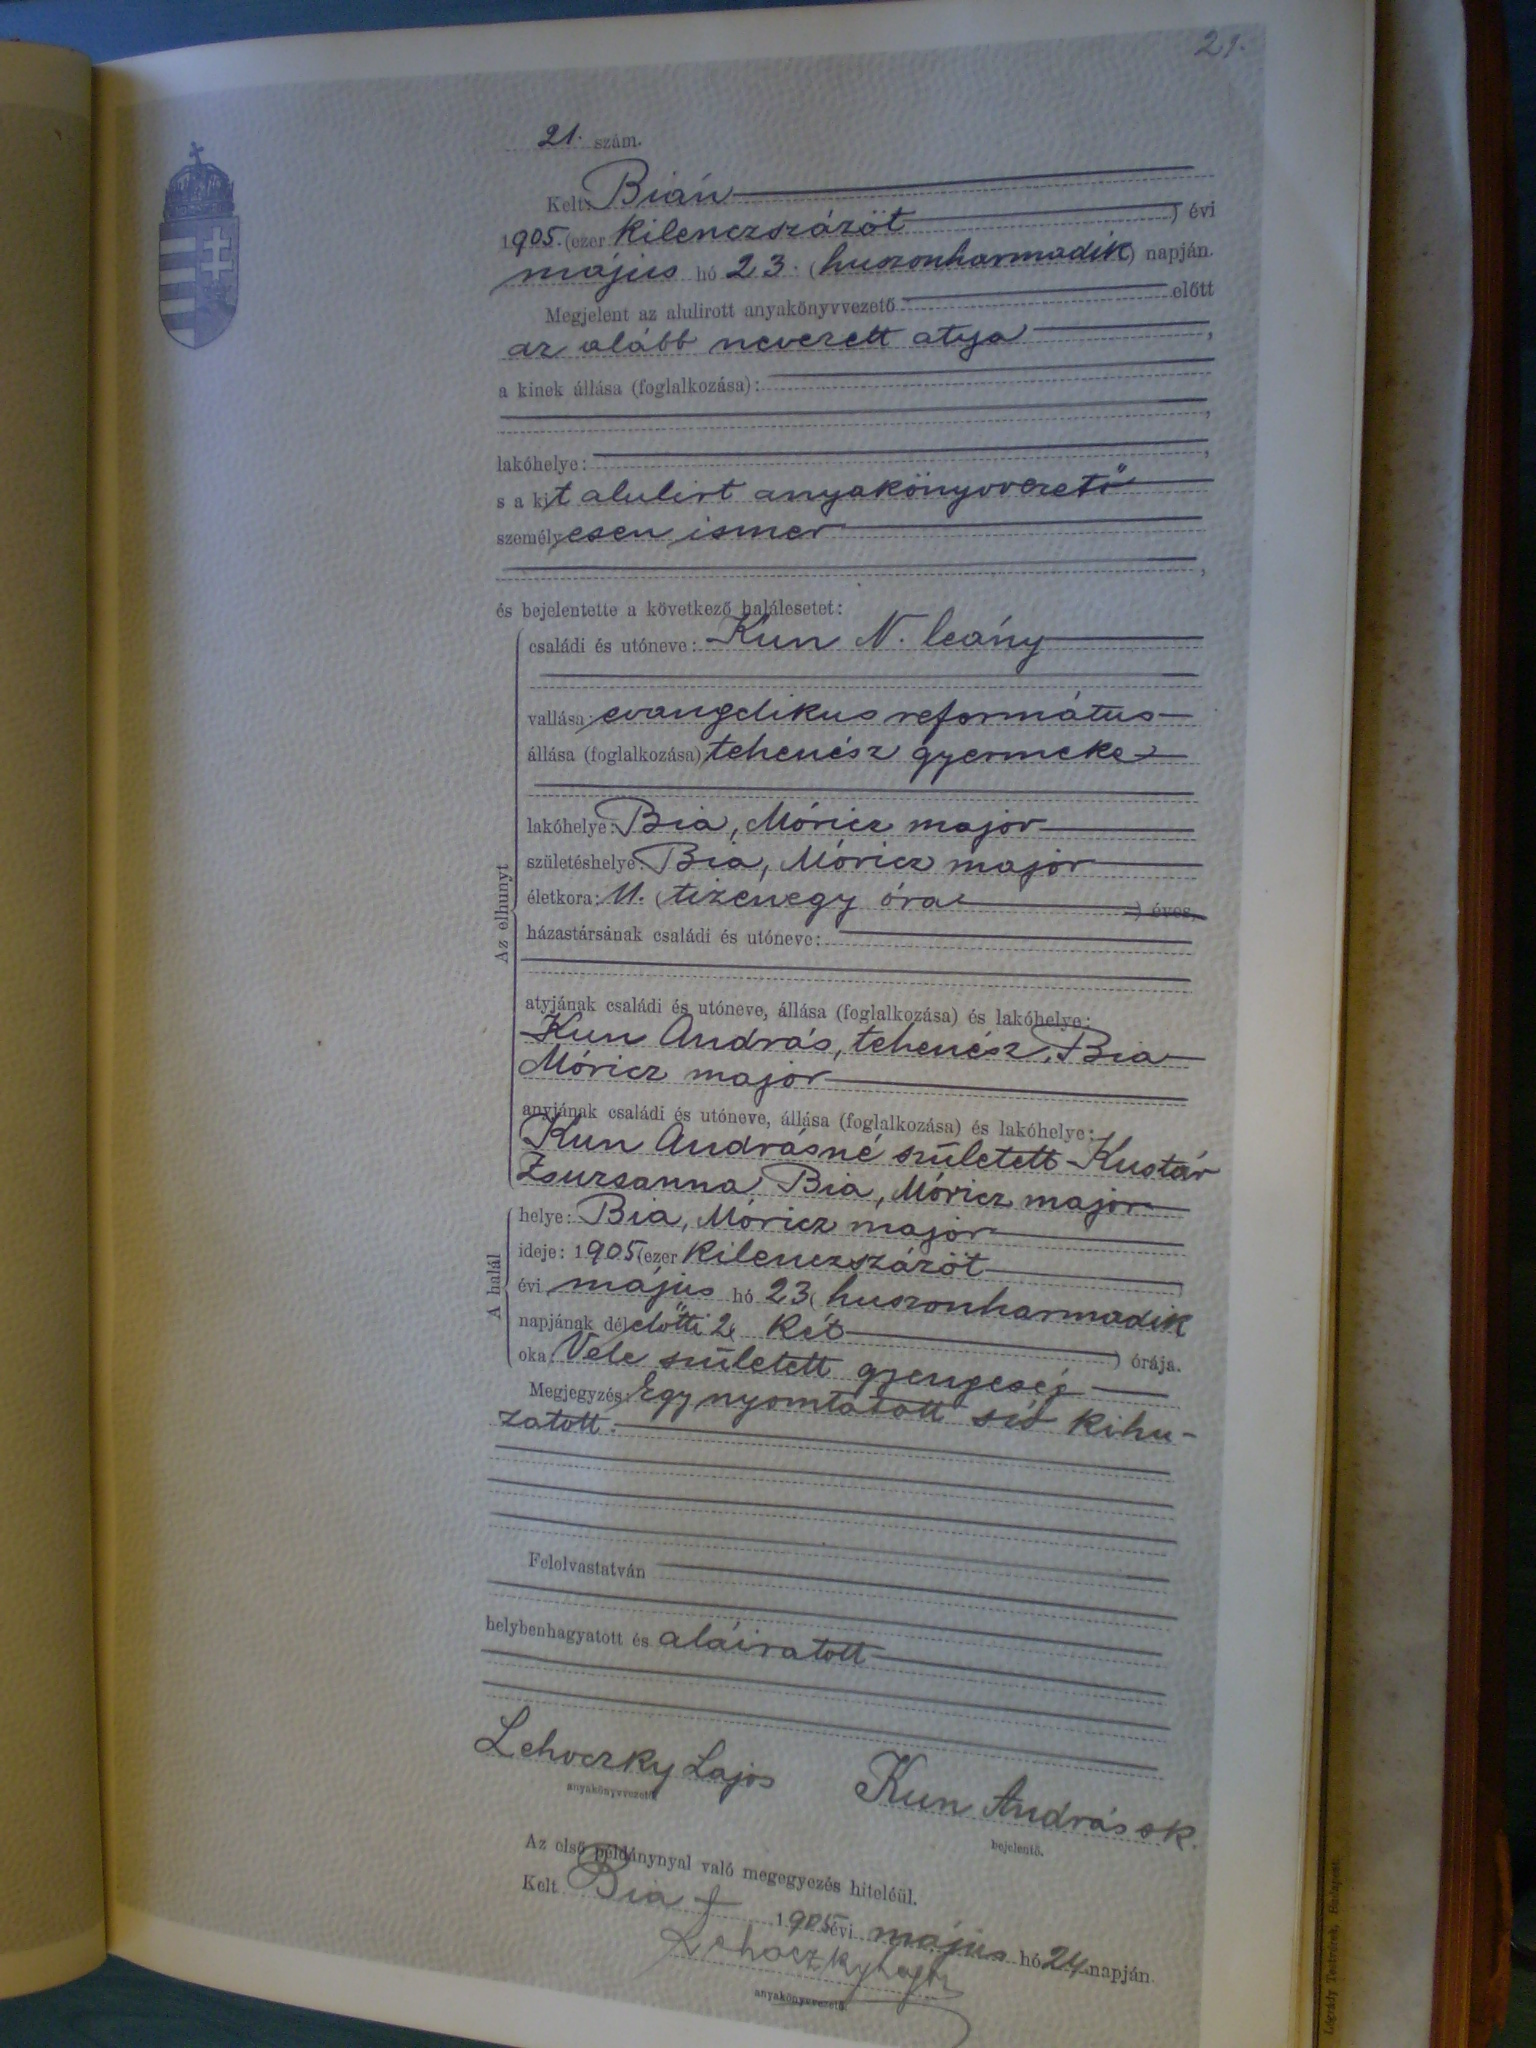 21.
21. szám.
Kelt: Bián
1905. (ezer kilenczszázöt ) évi
május hó 23. (huszonharmadik) napján.
Megjelent az alulirott anyakönyvvezető előtt
az alább nevezett atya ,
a kinek állása (foglalkozása):
,
lakóhelye: ,
s a kit alulirt anyakönyvvezető
személyesen ismer
,
és bejelentette a következő halálesetet:
Az elhunyt
családi és utóneve: Kun N. leány
vallása: evangelikus református
állása (foglalkozása): tehenész gyermeke
lakóhelye: Bia, Móricz major
születéshelye: Bia, Móricz major
életkora: 11. (tizenegy óra ) éves,
házastársának családi és utóneve:
atyjának családi és utóneve, állása (foglalkozása) és lakóhelye:
Kun András, tehenész, Bia
Móricz major
anyjának családi és utóneve, állása (foglalkozása) és lakóhelye:
Kun Andrásné született Kustár
Zsuzsanna, Bia, Móricz major
A halál
helye: Bia, Móricz major
ideje: 1905 (ezer kilenczszázöt )
évi május hó 23 (huszonharmadik
napjának délelőtti 2 ( két ) órája.
oka: Vele született gyengeség
Megjegyzés: Egy nyomtatott szó kihu-
zatott.
Felolvastatván
helybenhagyatott és aláiratott
Lehoczky Lajos Kun András sk.
anyakönyvvezető bejelentő.
Az első példánynyal való megegyezés hiteléül.
Kelt Bia 1905 évi május hó 24 napján
Lehoczky Lajos
anyakönyvvezető
Légrády Testvérek, Budapest.